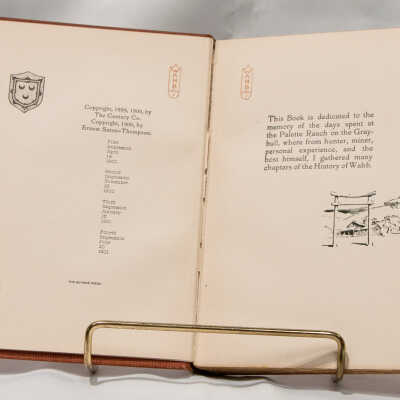 Copyright, 1899, 1900, by
The Century Co.
Copyright, 1900, by
Ernest Seton-Thompson.
First
Impression
April
Second
Impression
November
Third
Impression
January
Fourth
Impression
WAHB
This Book is dedicated to the
memory of the days spent at
the Palette Ranch on the Gray-
bull, where from hunter, miner,
personal experience, and the
best himself, I gathered many
chapters of the History of Wahb.